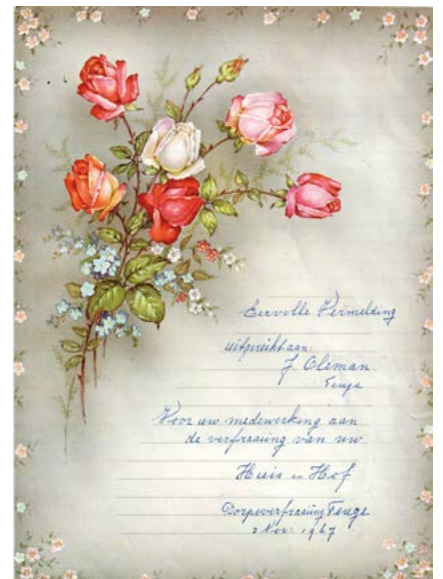 Eervolle Vermelding
uitgereikt aan:
J Oleman
Teuge
Voor uw medewerking aan
de verfraaiing van uw
Huis en Hof
Dorpsverfraaiing Teuge
2 Nov. 1967